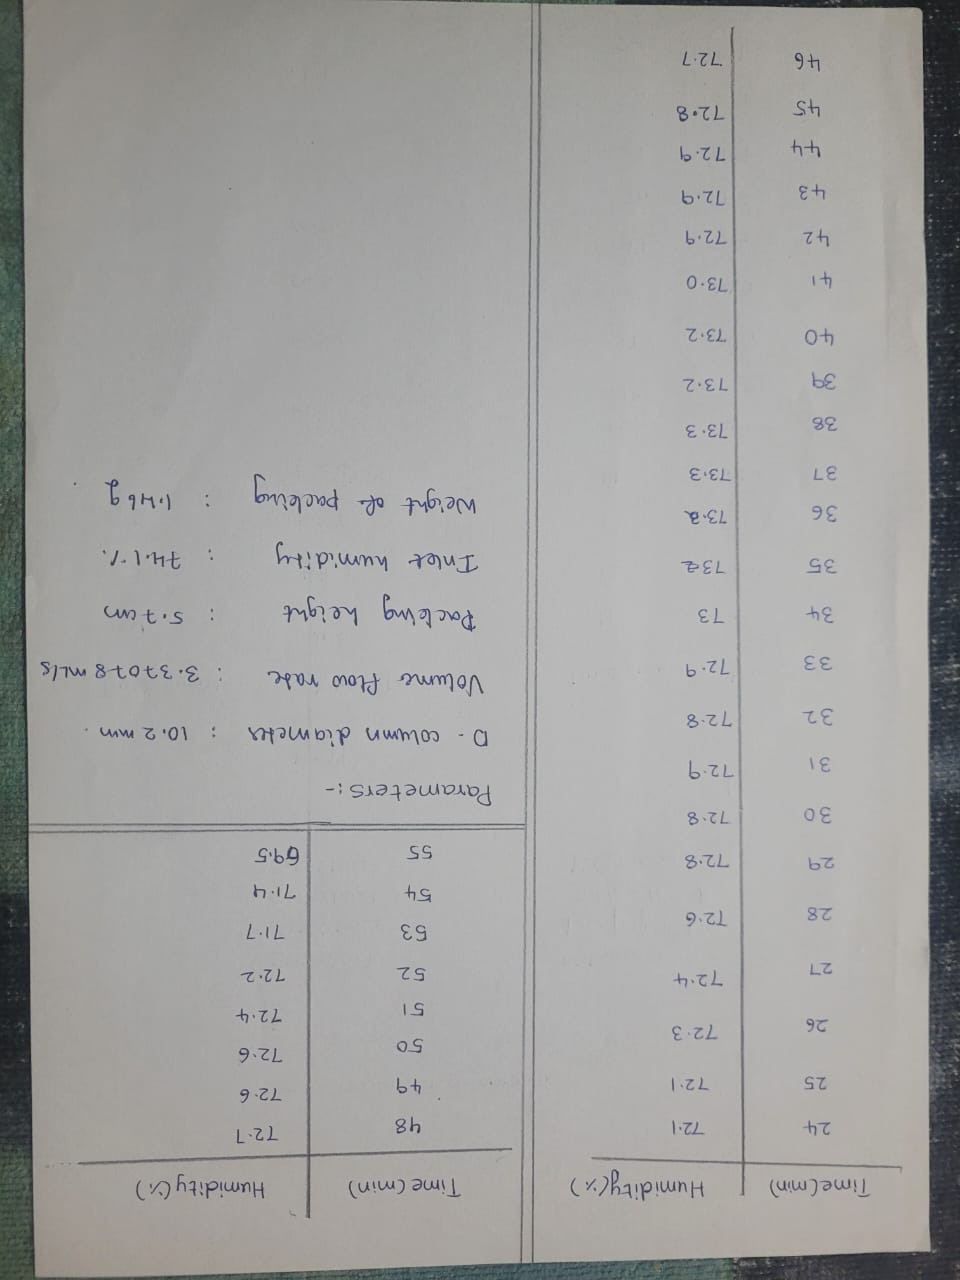 Time(min) Humidity(%)
24 72.1
25 72.1
26 72.3
27 72.4
28 72.6
29 72.8
30 72.8
31 72.9
32 72.8
33 72.9
34 73
35
36
37 73.3
38 73.3
39 73.2
40 73.2
41 73.0
42 72.9
43 72.9
44 72.9
45 72.8
46 72.7
Time (min) Humidity (%)
48 72.7
49 72.6
50 72.6
51 72.4
52 72.2
53 71.7
54 71.4
55 69.5
Parameters :-
D - column diameter : 10.2 mm.
Volume flow rate : 3.37078 mL/s
Packing height : 5.7 cm
Inlet humidity : 74.1 %.
Weight of packing : 1.46 g.